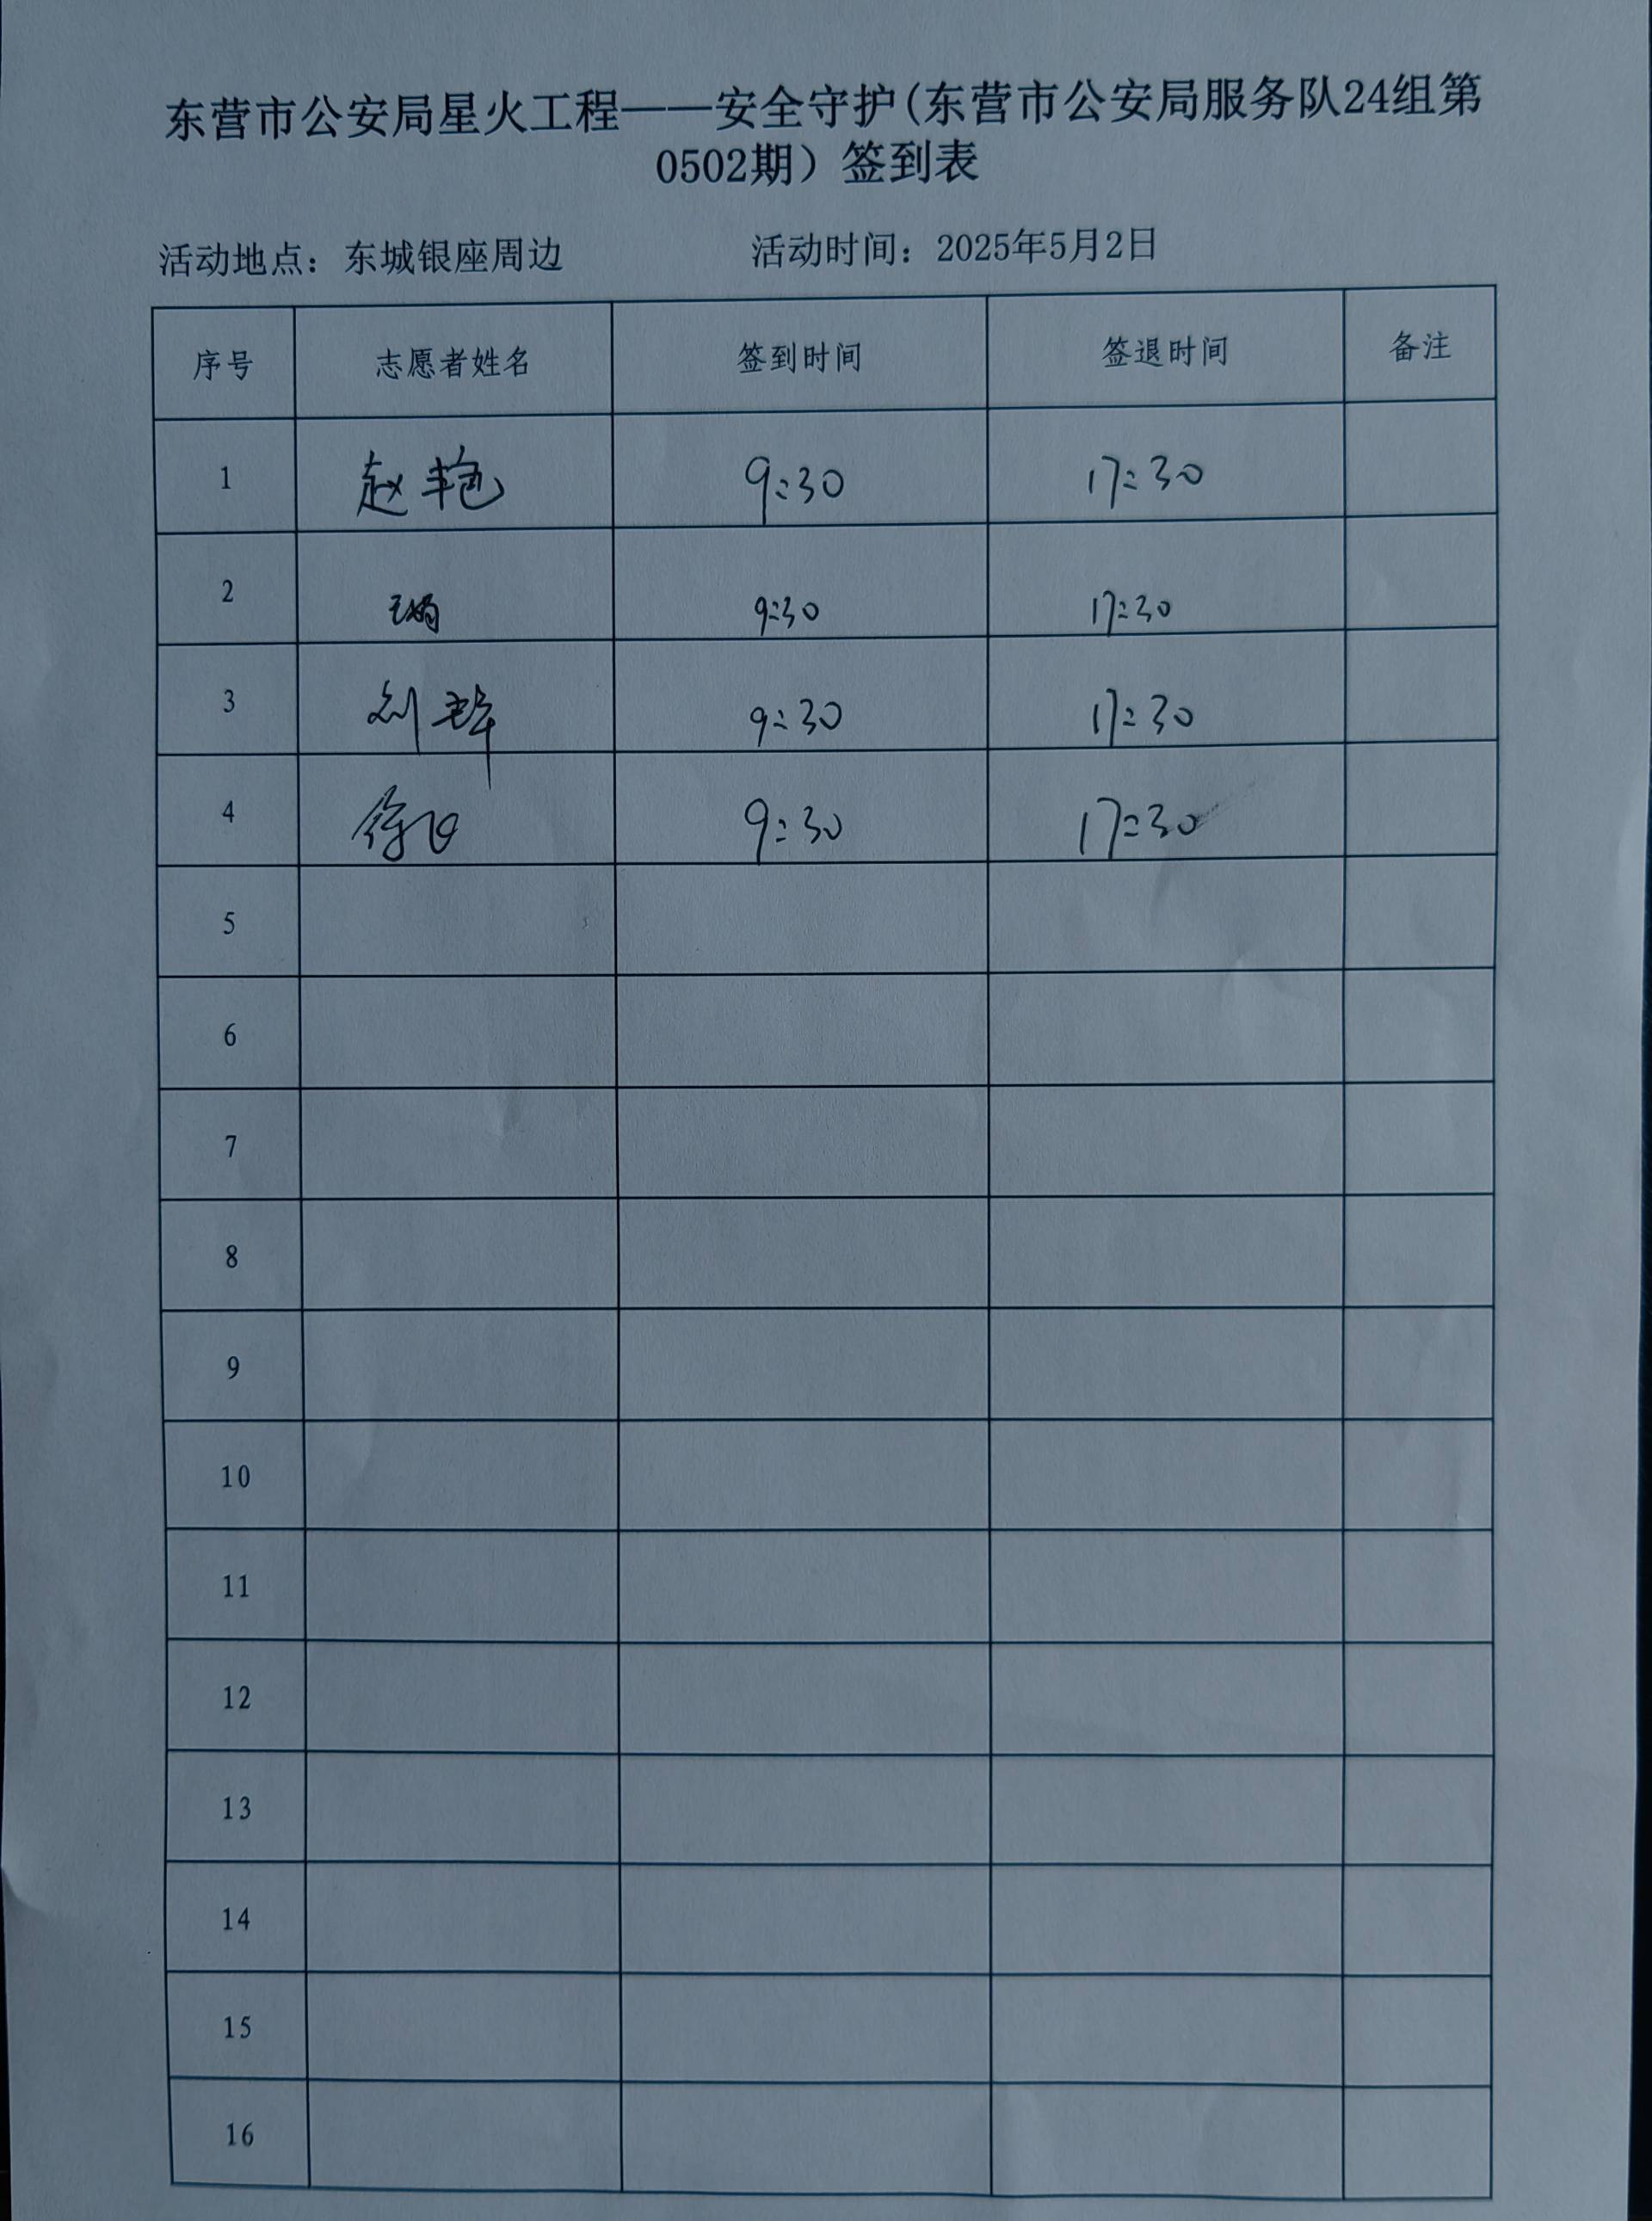 东营市公安局星火工程——安全守护(东营市公安局服务队24组第
0502期）签到表
活动地点：东城银座周边 活动时间：2025年5月2日
序号 志愿者姓名 签到时间 签退时间 备注
1 赵艳 9:30 17:30
2 9:30 17:30
3 刘 9:30 17:30
4 徐 9:30 17:30
5
6
7
8
9
10
11
12
13
14
15
16